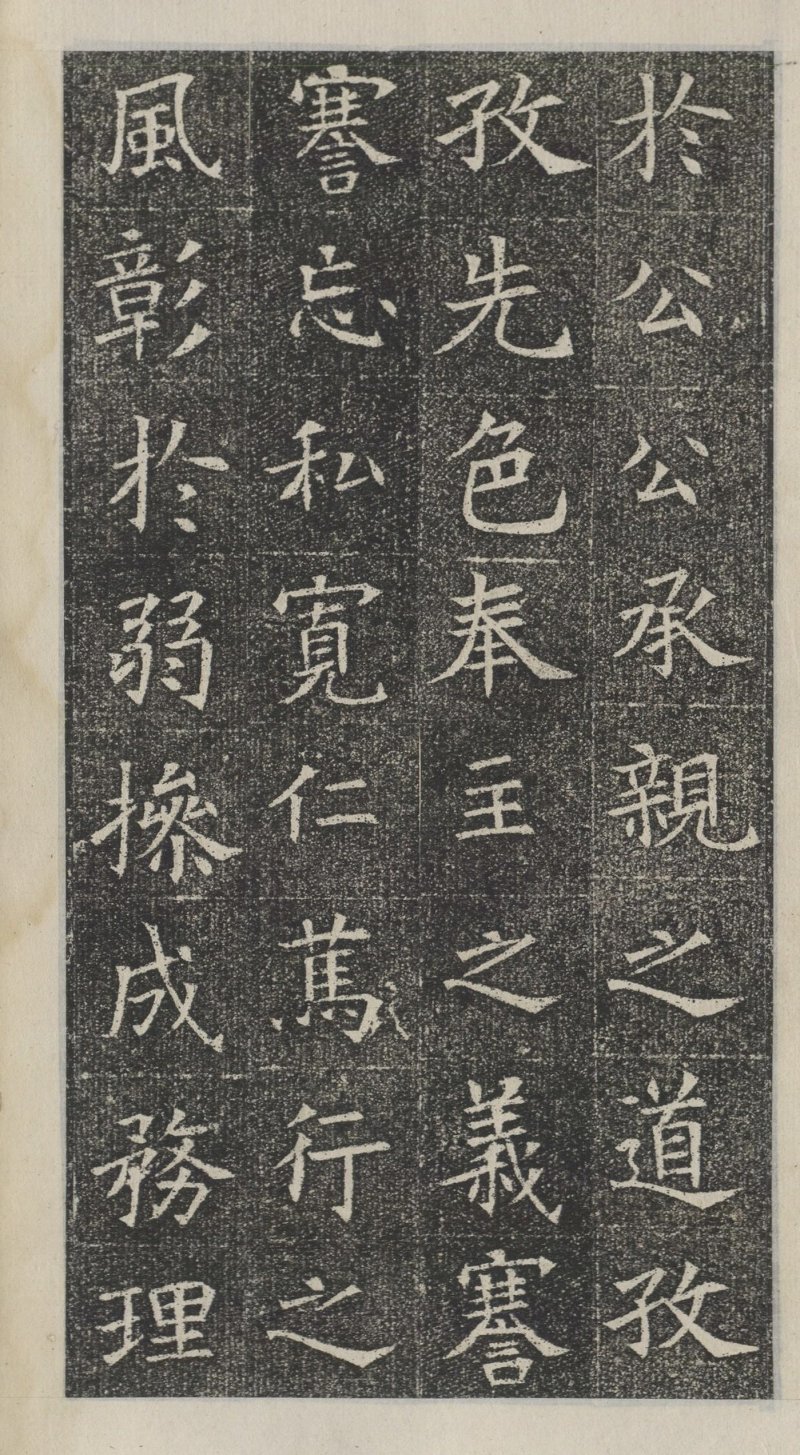 於公公承親之道孜
孜先色奉主之義謇
謇忘私寬仁蔿行之
風彰於弱操成務理